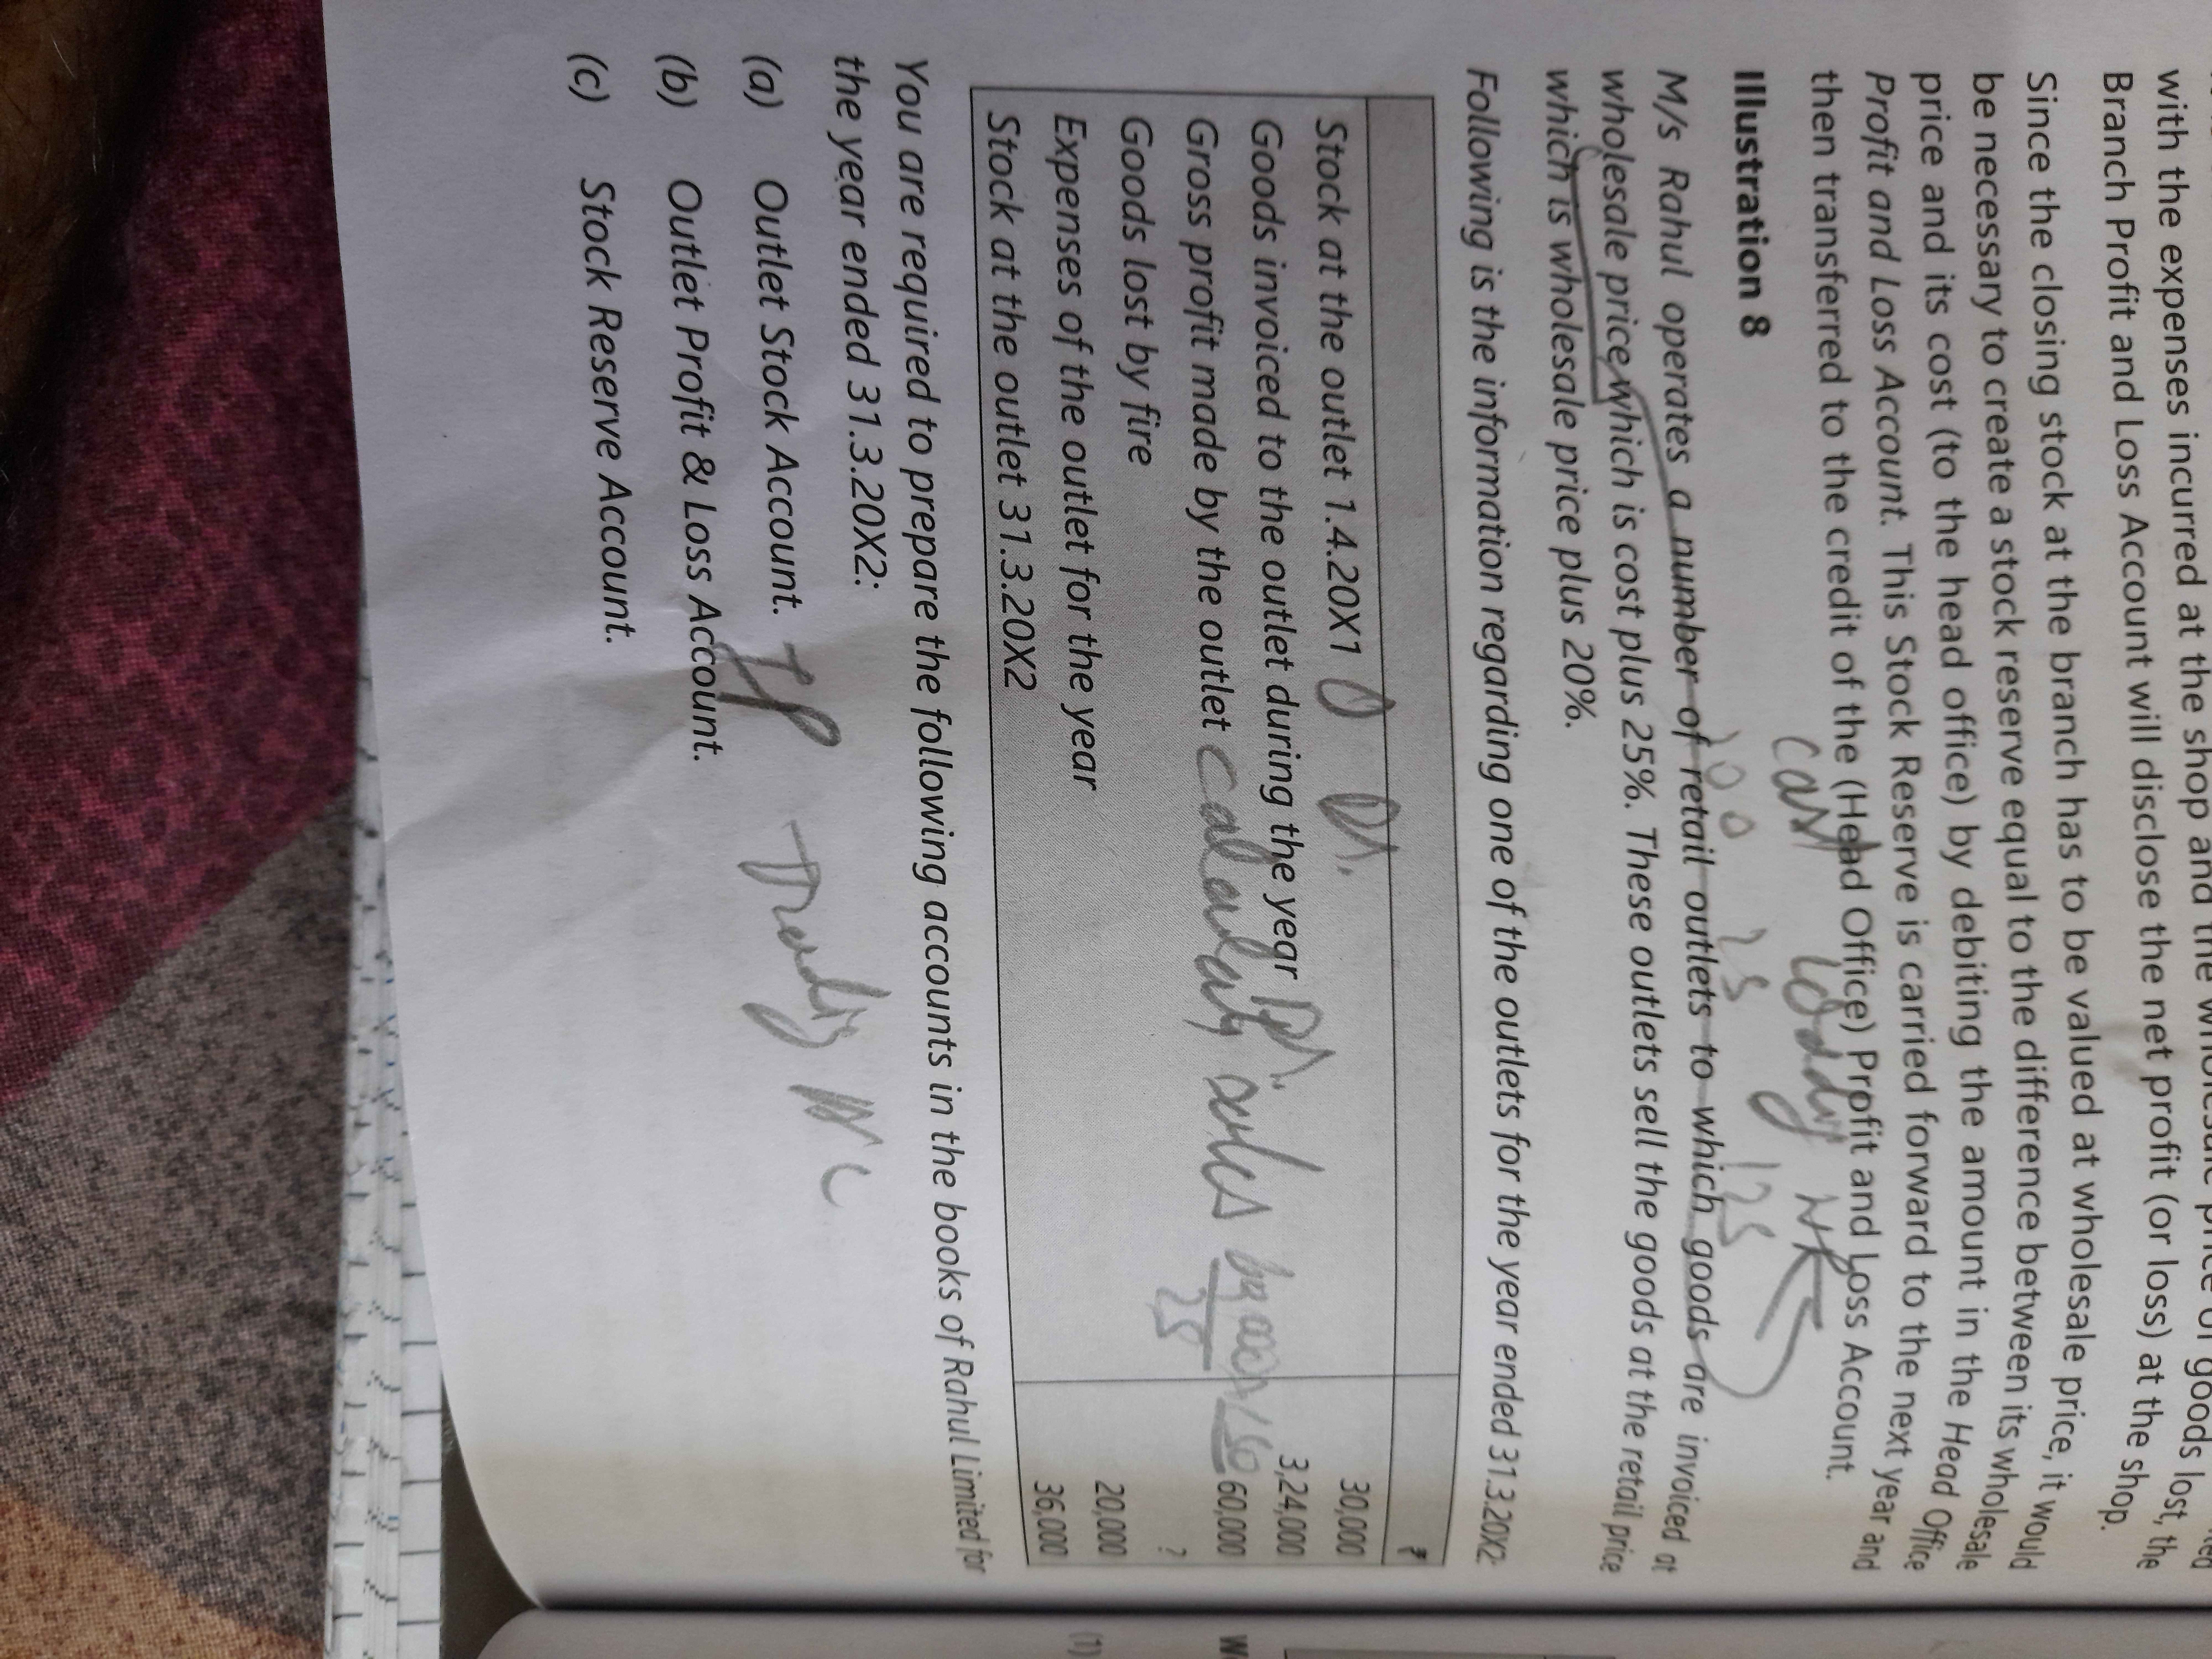 with the expenses incurred at the shop and the wholesale price of goods lost, the
Branch Profit and Loss Account will disclose the net profit (or loss) at the shop.
Since the closing stock at the branch has to be valued at wholesale price, it would
be necessary to create a stock reserve equal to the difference between its wholesale
price and its cost (to the head office) by debiting the amount in the Head Office
Profit and Loss Account. This Stock Reserve is carried forward to the next year and
then transferred to the credit of the (Head Office) Profit and Loss Account.
Cost Loading
Illustration 8
100 25 125
M/s Rahul operates a number of retail outlets to which goods are invoiced at
wholesale price which is cost plus 25%. These outlets sell the goods at the retail price
which is wholesale price plus 20%.
Following is the information regarding one of the outlets for the year ended 31.3.20X2
₹
Stock at the outlet 1.4.20X1 Dr. 30,000
Goods invoiced to the outlet during the year Dr. 3,24,000
Gross profit made by the outlet Calculate sales 60,000
25
Goods lost by fire ?
Expenses of the outlet for the year 20,000
Stock at the outlet 31.3.20X2 36,000
You are required to prepare the following accounts in the books of Rahul Limited for
the year ended 31.3.20X2:
(a) Outlet Stock Account. IP Trading A/c
(b) Outlet Profit & Loss Account.
(c) Stock Reserve Account.
(1)